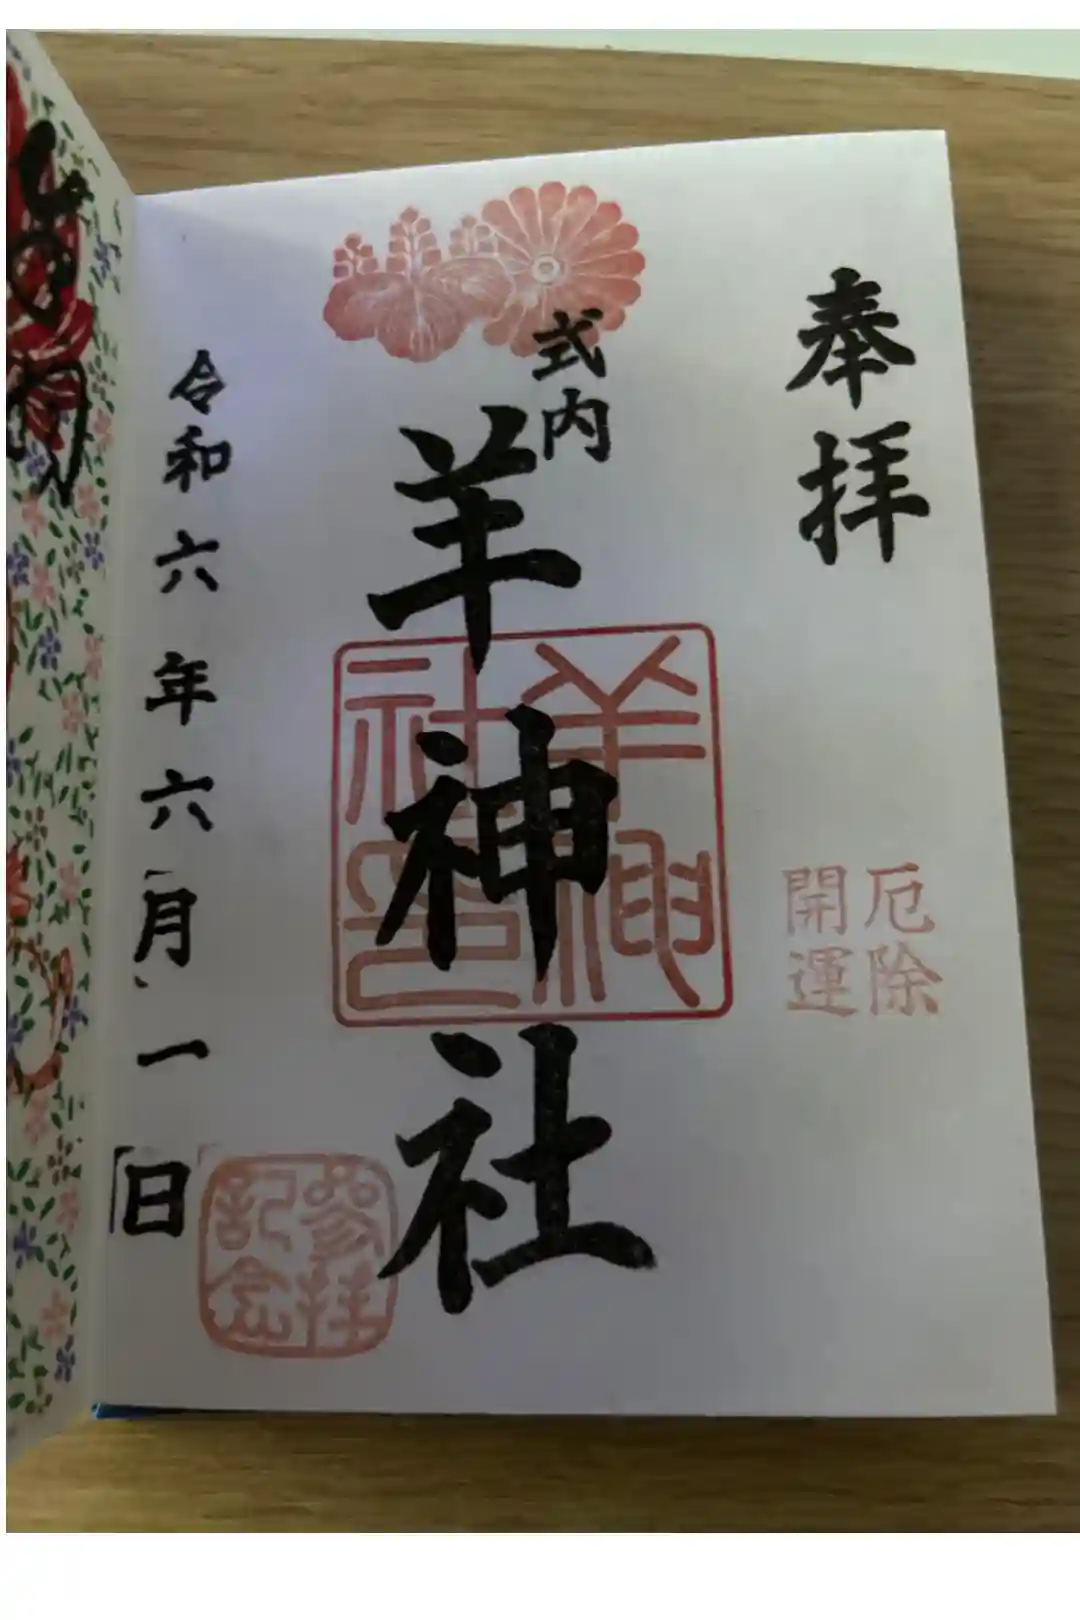 奉拝
厄除
開運
式内
羊神社
羊神
社印
参拝
記念
令和六年六月一日